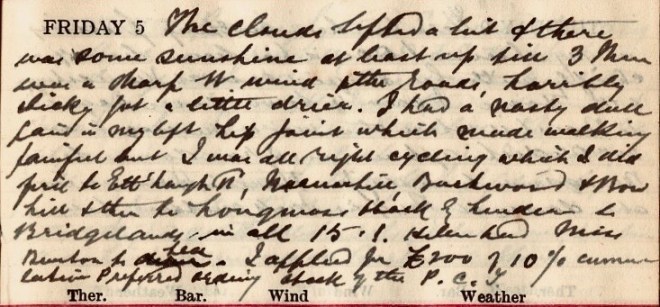 FRIDAY 5 The clouds lifted a bit & there
was some sunshine at least up till 3 There
was a sharp W wind & the roads, horribly
sticky got a little drier. I had a nasty dull
pain in my left hip joint which made walking
painful but I was all right cycling which I did
first to Ett Haugh & Bow
hill & then to back & to
Bridgelands in all 15. I. Helen had Miss
to tea. I applied for £200 of 10% cumu
lative Preferred stock of the P. C.
Ther. Bar. Wind Weather